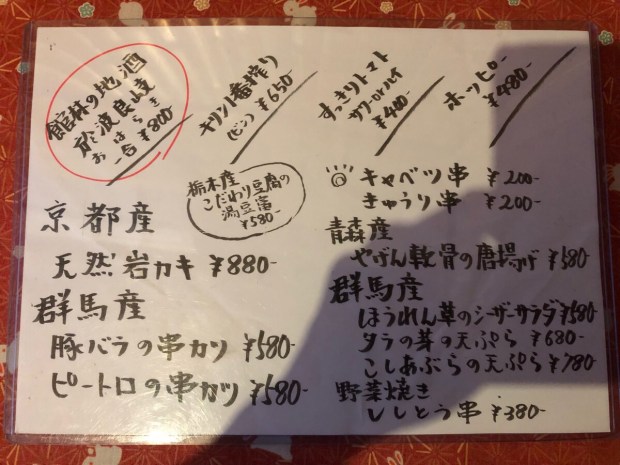 館林の地酒
於波良岐
おはらき
一合 ¥800
キリン一番搾り
(ビン) ¥650-
すっきりトマト
サワーorハイ
¥400-
ホッピー
¥480-
栃木産
こだわり豆腐の
湯豆腐
¥580-
京都産
天然岩カキ ¥880-
群馬産
豚バラの串カツ ¥580-
ピートロの串カツ ¥580-
キャベツ串 ¥200-
きゅうり串 ¥200-
青森産
やげん軟骨の唐揚げ ¥580
群馬産
ほうれん草のシーザーサラダ ¥580
タラの芽の天ぷら ¥680-
こしあぶらの天ぷら ¥780
野菜焼き
ししとう串 ¥380-